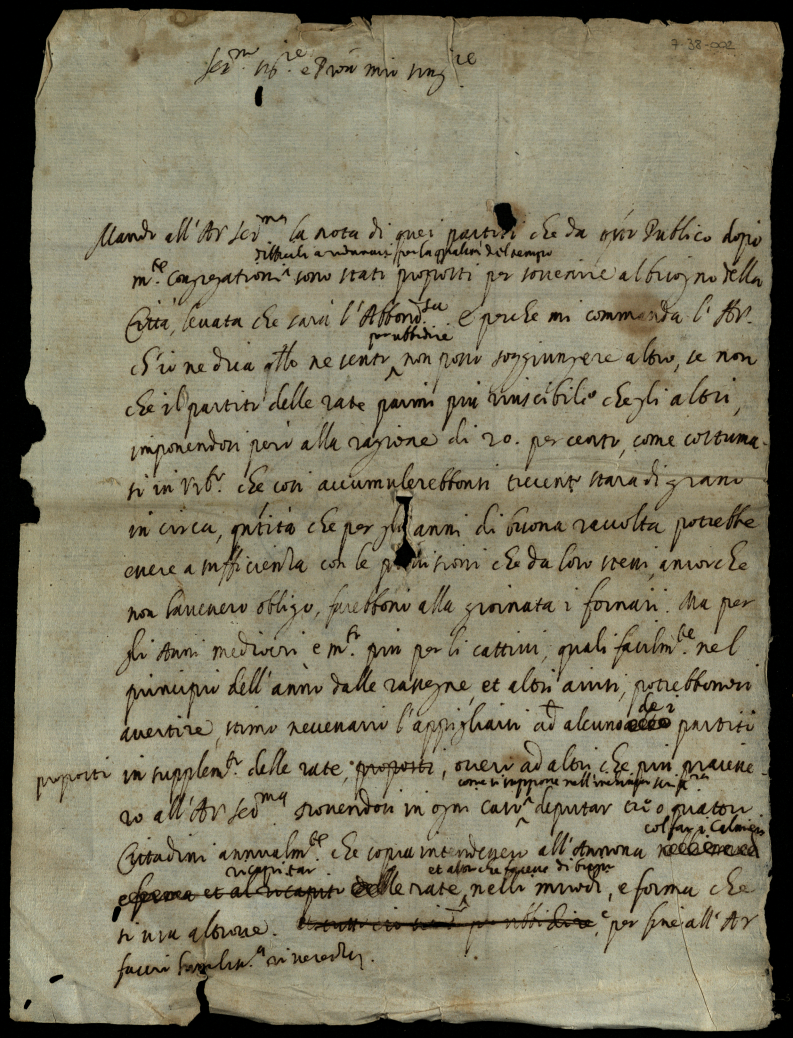 7-38-002
Ser.mo Sig.re e Pron mio sing.re
Mando all'Av Ser.ma la nota di quei partiti che da q.to Publico dopo
difficili a radunarsi per la qualità del tempo
m.te Congregationi sono stati proposti per sovenire al bisogno della
Città, levata che sarà l'Abbond.za E perche mi commanda l'Av.
per ubbidire
ch'io ne dica q.llo ne sento non posso soggiungere altro, se non
che il partito delle rate parmi più riuscibile che gli altri,
imponendosi però alla ragione di 20. per cento, come costuma-
si in che così accumulerebbonsi trecento stara di grano
in circa, q.ntità che per gli anni di buona raccolta potrebbe
essere a sufficienza con le provisioni che da loro stessi, ancorche
non havessero obligo, farebbono alla giornata i fornari. Ma per
gli Anni mediocri e m.to più per li cattivi, quali facilm.te nel
principio dell'anno dalle rassegne, et altri avisi, potrebbonsi
dei
avertire, stimo necessario l'appigliarsi ad alcuno partiti
proposti
in supplem.to delle rate, proposti, overo ad altri che più piacesse-
come si suppone nell'
ro all'Av Ser.ma dovendosi in ogni caso deputar tre o quattro
col far i Calmieri
Cittadini annualm.te che sopraintendessero all'Annona
ricapitar et altro che facesse di bisogno
et al ricapito delle rate, nelli modi, e forma che
si usa altrove. per ubbidire, e per fine all'Av
faccio humiliss.a riverenza.